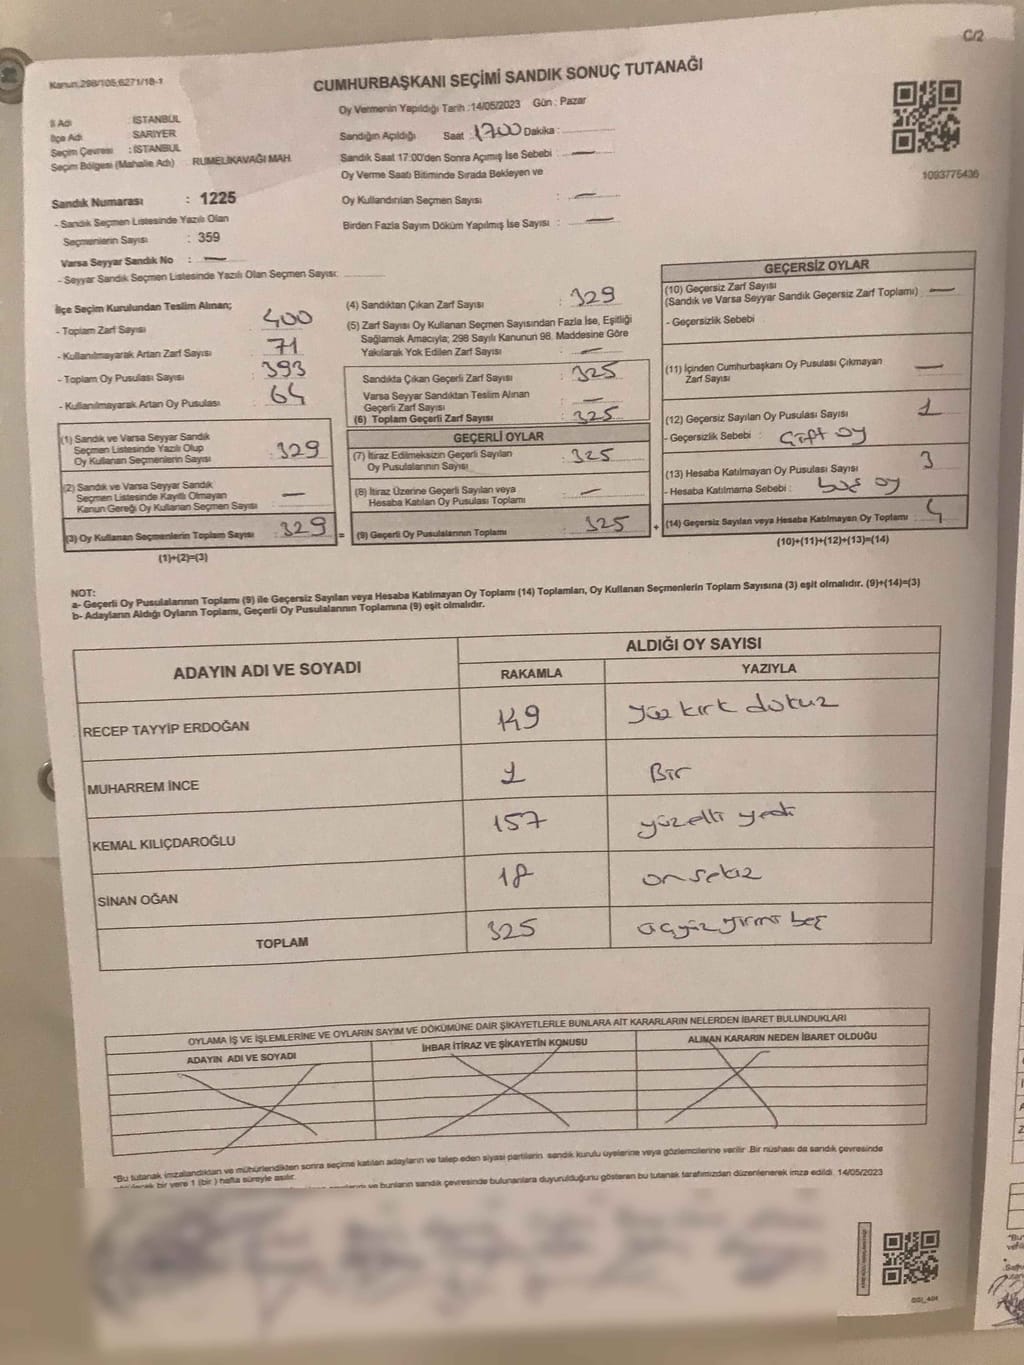 C/2
Kanun;298/105;6271/18-1
CUMHURBAŞKANI SEÇİMİ SANDIK SONUÇ TUTANAĞI
Oy Vermenin Yapıldığı Tarih :14/05/2023 Gün : Pazar
İl Adı : İSTANBUL
İlçe Adı : SARIYER
Seçim Çevresi : İSTANBUL
Seçim Bölgesi (Mahalle Adı) : RUMELİKAVAĞI MAH.
Sandık Numarası : 1225
- Sandık Seçmen Listesinde Yazılı Olan
Seçmenlerin Sayısı : 359
Varsa Seyyar Sandık No : —
- Seyyar Sandık Seçmen Listesinde Yazılı Olan Seçmen Sayısı:
Sandığın Açıldığı Saat : 1700 Dakika :
Sandık Saat 17:00'den Sonra Açımış İse Sebebi : —
Oy Verme Saati Bitiminde Sırada Bekleyen ve
Oy Kullandırılan Seçmen Sayısı : —
Birden Fazla Sayım Döküm Yapılmış İse Sayısı : —
1093775436
İlçe Seçim Kurulundan Teslim Alınan;
- Toplam Zarf Sayısı : 400
- Kullanılmayarak Artan Zarf Sayısı : 71
- Toplam Oy Pusulası Sayısı : 393
- Kullanılmayarak Artan Oy Pusulası : 64
(1) Sandık ve Varsa Seyyar Sandık
Seçmen Listesinde Yazılı Olup
Oy Kullanan Seçmenlerin Sayısı : 329
(2) Sandık ve Varsa Seyyar Sandık
Seçmen Listesinde Kayıtlı Olmayan
Kanun Gereği Oy Kullanan Seçmen Sayısı : —
(3) Oy Kullanan Seçmenlerin Toplam Sayısı : 329
(1)+(2)=(3)
(4) Sandıktan Çıkan Zarf Sayısı : 329
(5) Zarf Sayısı Oy Kullanan Seçmen Sayısından Fazla İse, Eşitliği
Sağlamak Amacıyla; 298 Sayılı Kanunun 98. Maddesine Göre
Yakılarak Yok Edilen Zarf Sayısı : —
Sandıkta Çıkan Geçerli Zarf Sayısı : 325
Varsa Seyyar Sandıktan Teslim Alınan
Geçerli Zarf Sayısı : —
(6) Toplam Geçerli Zarf Sayısı : 325
GEÇERLİ OYLAR
(7) İtiraz Edilmeksizin Geçerli Sayılan
Oy Pusulalarının Sayısı : 325
(8) İtiraz Üzerine Geçerli Sayılan veya
Hesaba Katılan Oy Pusulası Toplamı : —
= (9) Geçerli Oy Pusulalarının Toplamı : 325 +
GEÇERSİZ OYLAR
(10) Geçersiz Zarf Sayısı
(Sandık ve Varsa Seyyar Sandık Geçersiz Zarf Toplamı) —
- Geçersizlik Sebebi
(11) İçinden Cumhurbaşkanı Oy Pusulası Çıkmayan
Zarf Sayısı —
(12) Geçersiz Sayılan Oy Pusulası Sayısı 1
- Geçersizlik Sebebi : Çift oy
(13) Hesaba Katılmayan Oy Pusulası Sayısı 3
- Hesaba Katılmama Sebebi : boş oy
(14) Geçersiz Sayılan veya Hesaba Katılmayan Oy Toplamı 4
(10)+(11)+(12)+(13)=(14)
NOT:
a- Geçerli Oy Pusulalarının Toplamı (9) ile Geçersiz Sayılan veya Hesaba Katılmayan Oy Toplamı (14) Toplamları, Oy Kullanan Seçmenlerin Toplam Sayısına (3) eşit olmalıdır. (9)+(14)=(3)
b- Adayların Aldığı Oyların Toplamı, Geçerli Oy Pusulalarının Toplamına (9) eşit olmalıdır.
ADAYIN ADI VE SOYADI
ALDIĞI OY SAYISI
RAKAMLA YAZIYLA
RECEP TAYYİP ERDOĞAN 149 yüz kırk dokuz
MUHARREM İNCE 1 Bir
KEMAL KILIÇDAROĞLU 157 yüzelli yedi
SİNAN OĞAN 18 onsekiz
TOPLAM 325 üçyüz yirmi beş
OYLAMA İŞ VE İŞLEMLERİNE VE OYLARIN SAYIM VE DÖKÜMÜNE DAİR ŞİKAYETLERLE BUNLARA AİT KARARLARIN NELERDEN İBARET BULUNDUKLARI
ADAYIN ADI VE SOYADI İHBAR İTİRAZ VE ŞİKAYETİN KONUSU ALINAN KARARIN NEDEN İBARET OLDUĞU
*Bu tutanak imzalandıktan ve mühürlendikten sonra seçime katılan adayların ve talep eden siyasi partilerin sandık kurulu üyelerine veya gözlemcilerine verilir .Bir nüshası da sandık çevresinde
bir yere 1 (bir ) hafta süreyle asılır.
ve bunların sandık çevresinde bulunanlara duyurulduğunu gösteren bu tutanak tarafımızdan düzenlenerek imza edildi. 14/05/2023